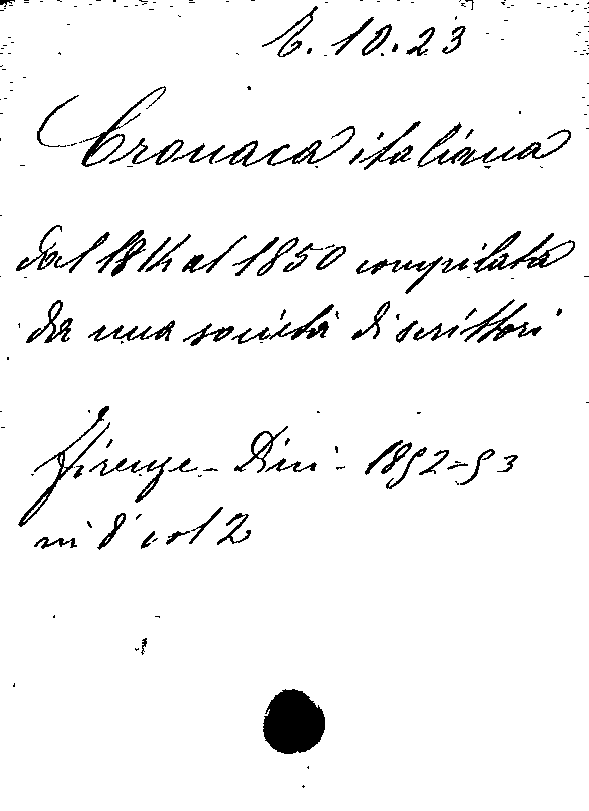 E. 10. 23
Cronaca italiana
dal 1814 al 1850 compilata
da una società di scrittori
Firenze - Dini - 1852-53
in 8° vol 2